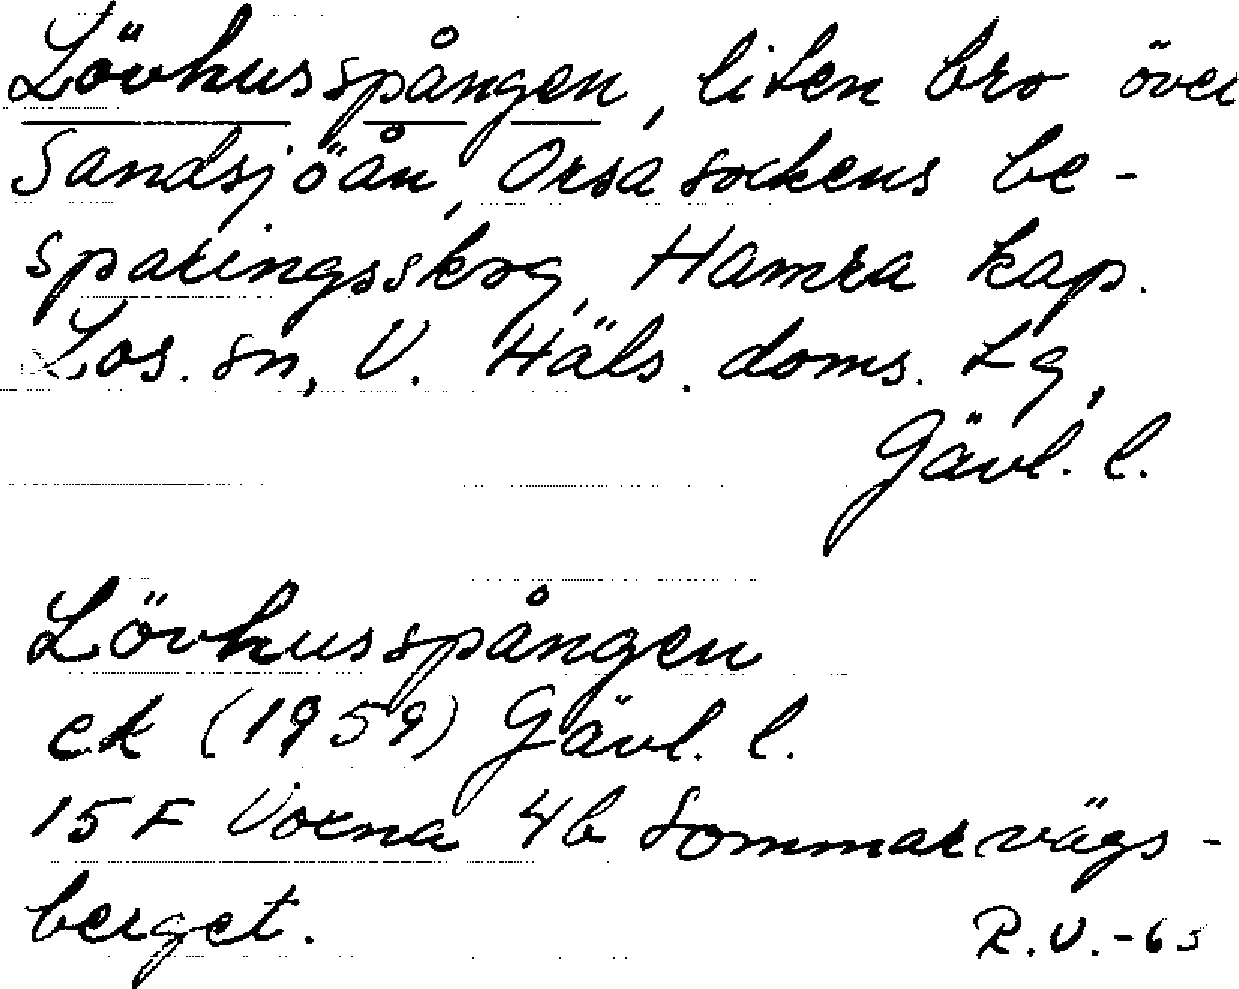 Lövhusspången, liten bro över
Sandsjöån, Orsa sockens be-
sparingsskog, Hamra kap.
Los. sn, V. Häls. doms. Lg,
Gävl. l.
Lövhusspången
ek (1959) Gävl. l.
15 F Voxna 4b Sommarvägs-
berget.
R.V.-65